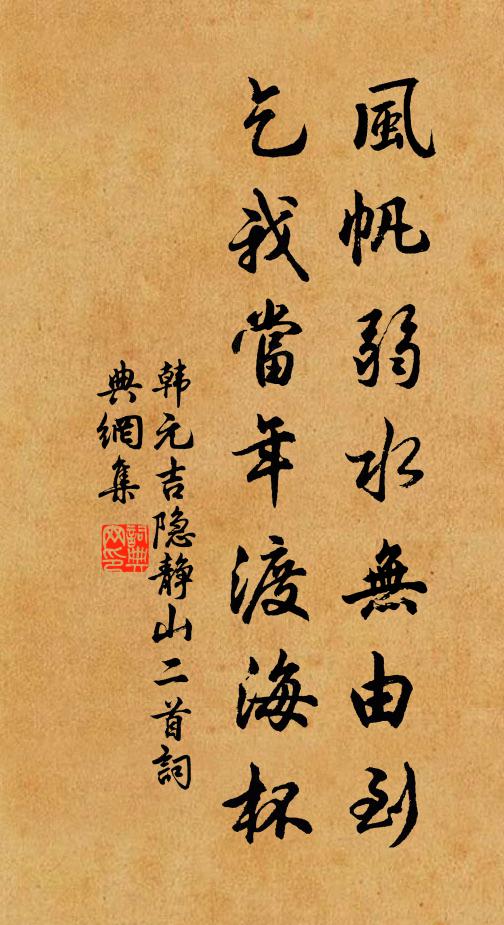 風帆弱水無由到
乞我當年渡海杯
韩元吉隐静山二首詞
典網集
詞典网印